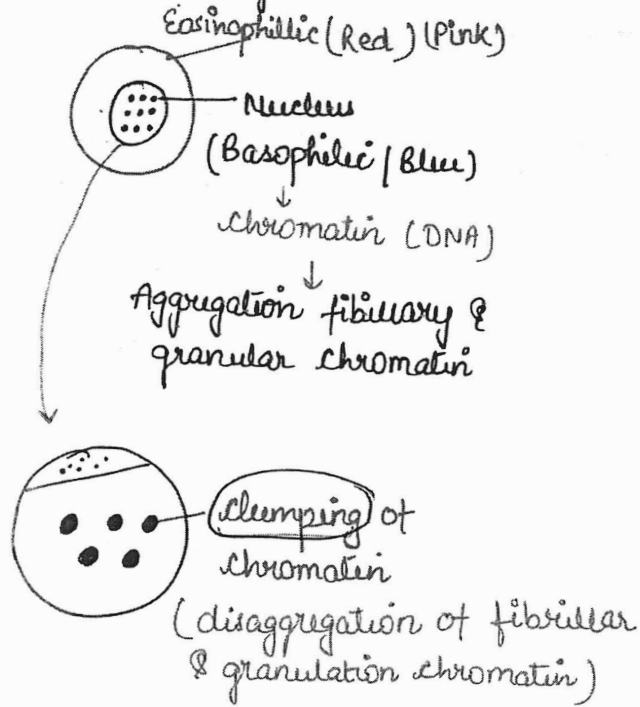 Eosinophillic (Red) (Pink)
Nucleus
(Basophilic / Blue)
↓
chromatin (DNA)
↓
Aggregation fibillary &
granular chromatin
clumping of
chromatin
(disaggregation of fibrillar
& granulation chromatin)